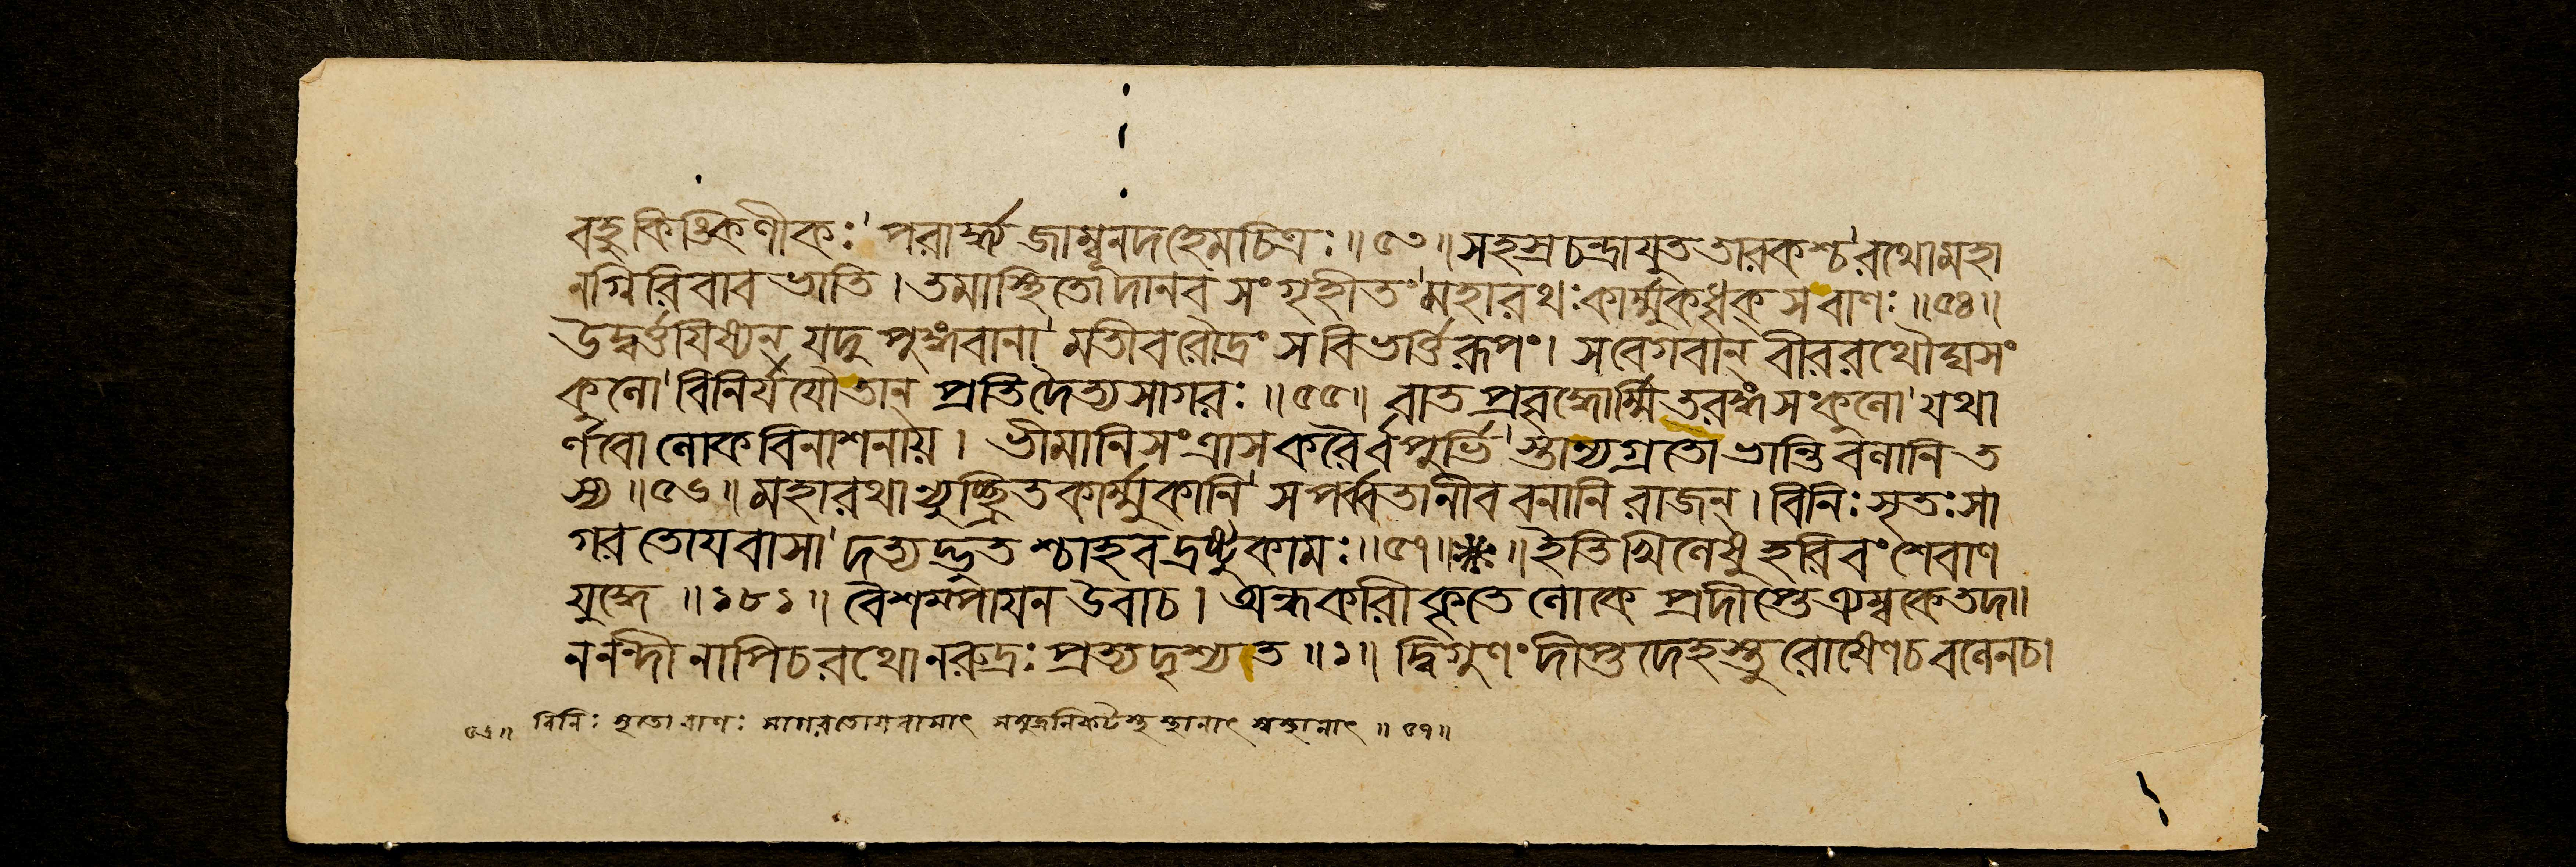 বহুকিঙ্কিণীকঃ' পরার্দ্ধ্যজাম্বূনদহেমচিত্রঃ॥৫৩॥সহস্রচন্দ্রাযুততারকশ্চ'রথোমহা
নগ্নিরিবাবভাতি।তমাস্থিতোদানবসংগৃহীতং'মহারথঃকার্ম্মুকধৃক্সবাণঃ॥৫৪॥
উদ্বর্ত্তয়িষ্যন্ যদুপুঙ্গবানা'মতীবরৌদ্রং সবিভর্ত্তিরূপং। সবেগবান্ বীররথৌঘসং
কুলো'বিনির্যযৌতান্ প্রতিদৈত্যসাগরঃ॥৫৫॥ বাতপ্রবৃদ্ধোর্ম্মিতরঙ্গসংকুলো'যথা
র্ণবোলোকবিনাশনায়। ভীমানিসংত্রাসকরৈর্বপুর্ভি'স্তান্যগ্রতোভান্তিবলানিত
স্য॥৫৬॥মহারথান্যুচ্ছ্রিতকার্ম্মুকানি'সপর্ব্বতানীববনানিরাজন্।বিনিঃসৃতঃসা
গরতোযবাসা'দত্যদ্ভুতশ্চাহবদ্রষ্টুকামঃ॥৫৭॥❋॥ইতিখিলেষুহরিবংশেবাণ
যুদ্ধে॥১৮১॥বৈশম্পায়নউবাচ।অন্ধকারীকৃতেলোকে প্রদীপ্তেত্র্যম্বকেতদা।
ননন্দীনাপিচরথোনরুদ্রঃপ্রত্যদৃশ্যত॥১॥দ্বিগুণংদীপ্তদেহস্তুরোষেণচবলেনচ।
বিনিঃসৃতোবাণঃ সাগরতোযবাসাৎ সমুদ্রনিকটস্থস্থানাৎ স্বস্থানাৎ॥৫৭॥